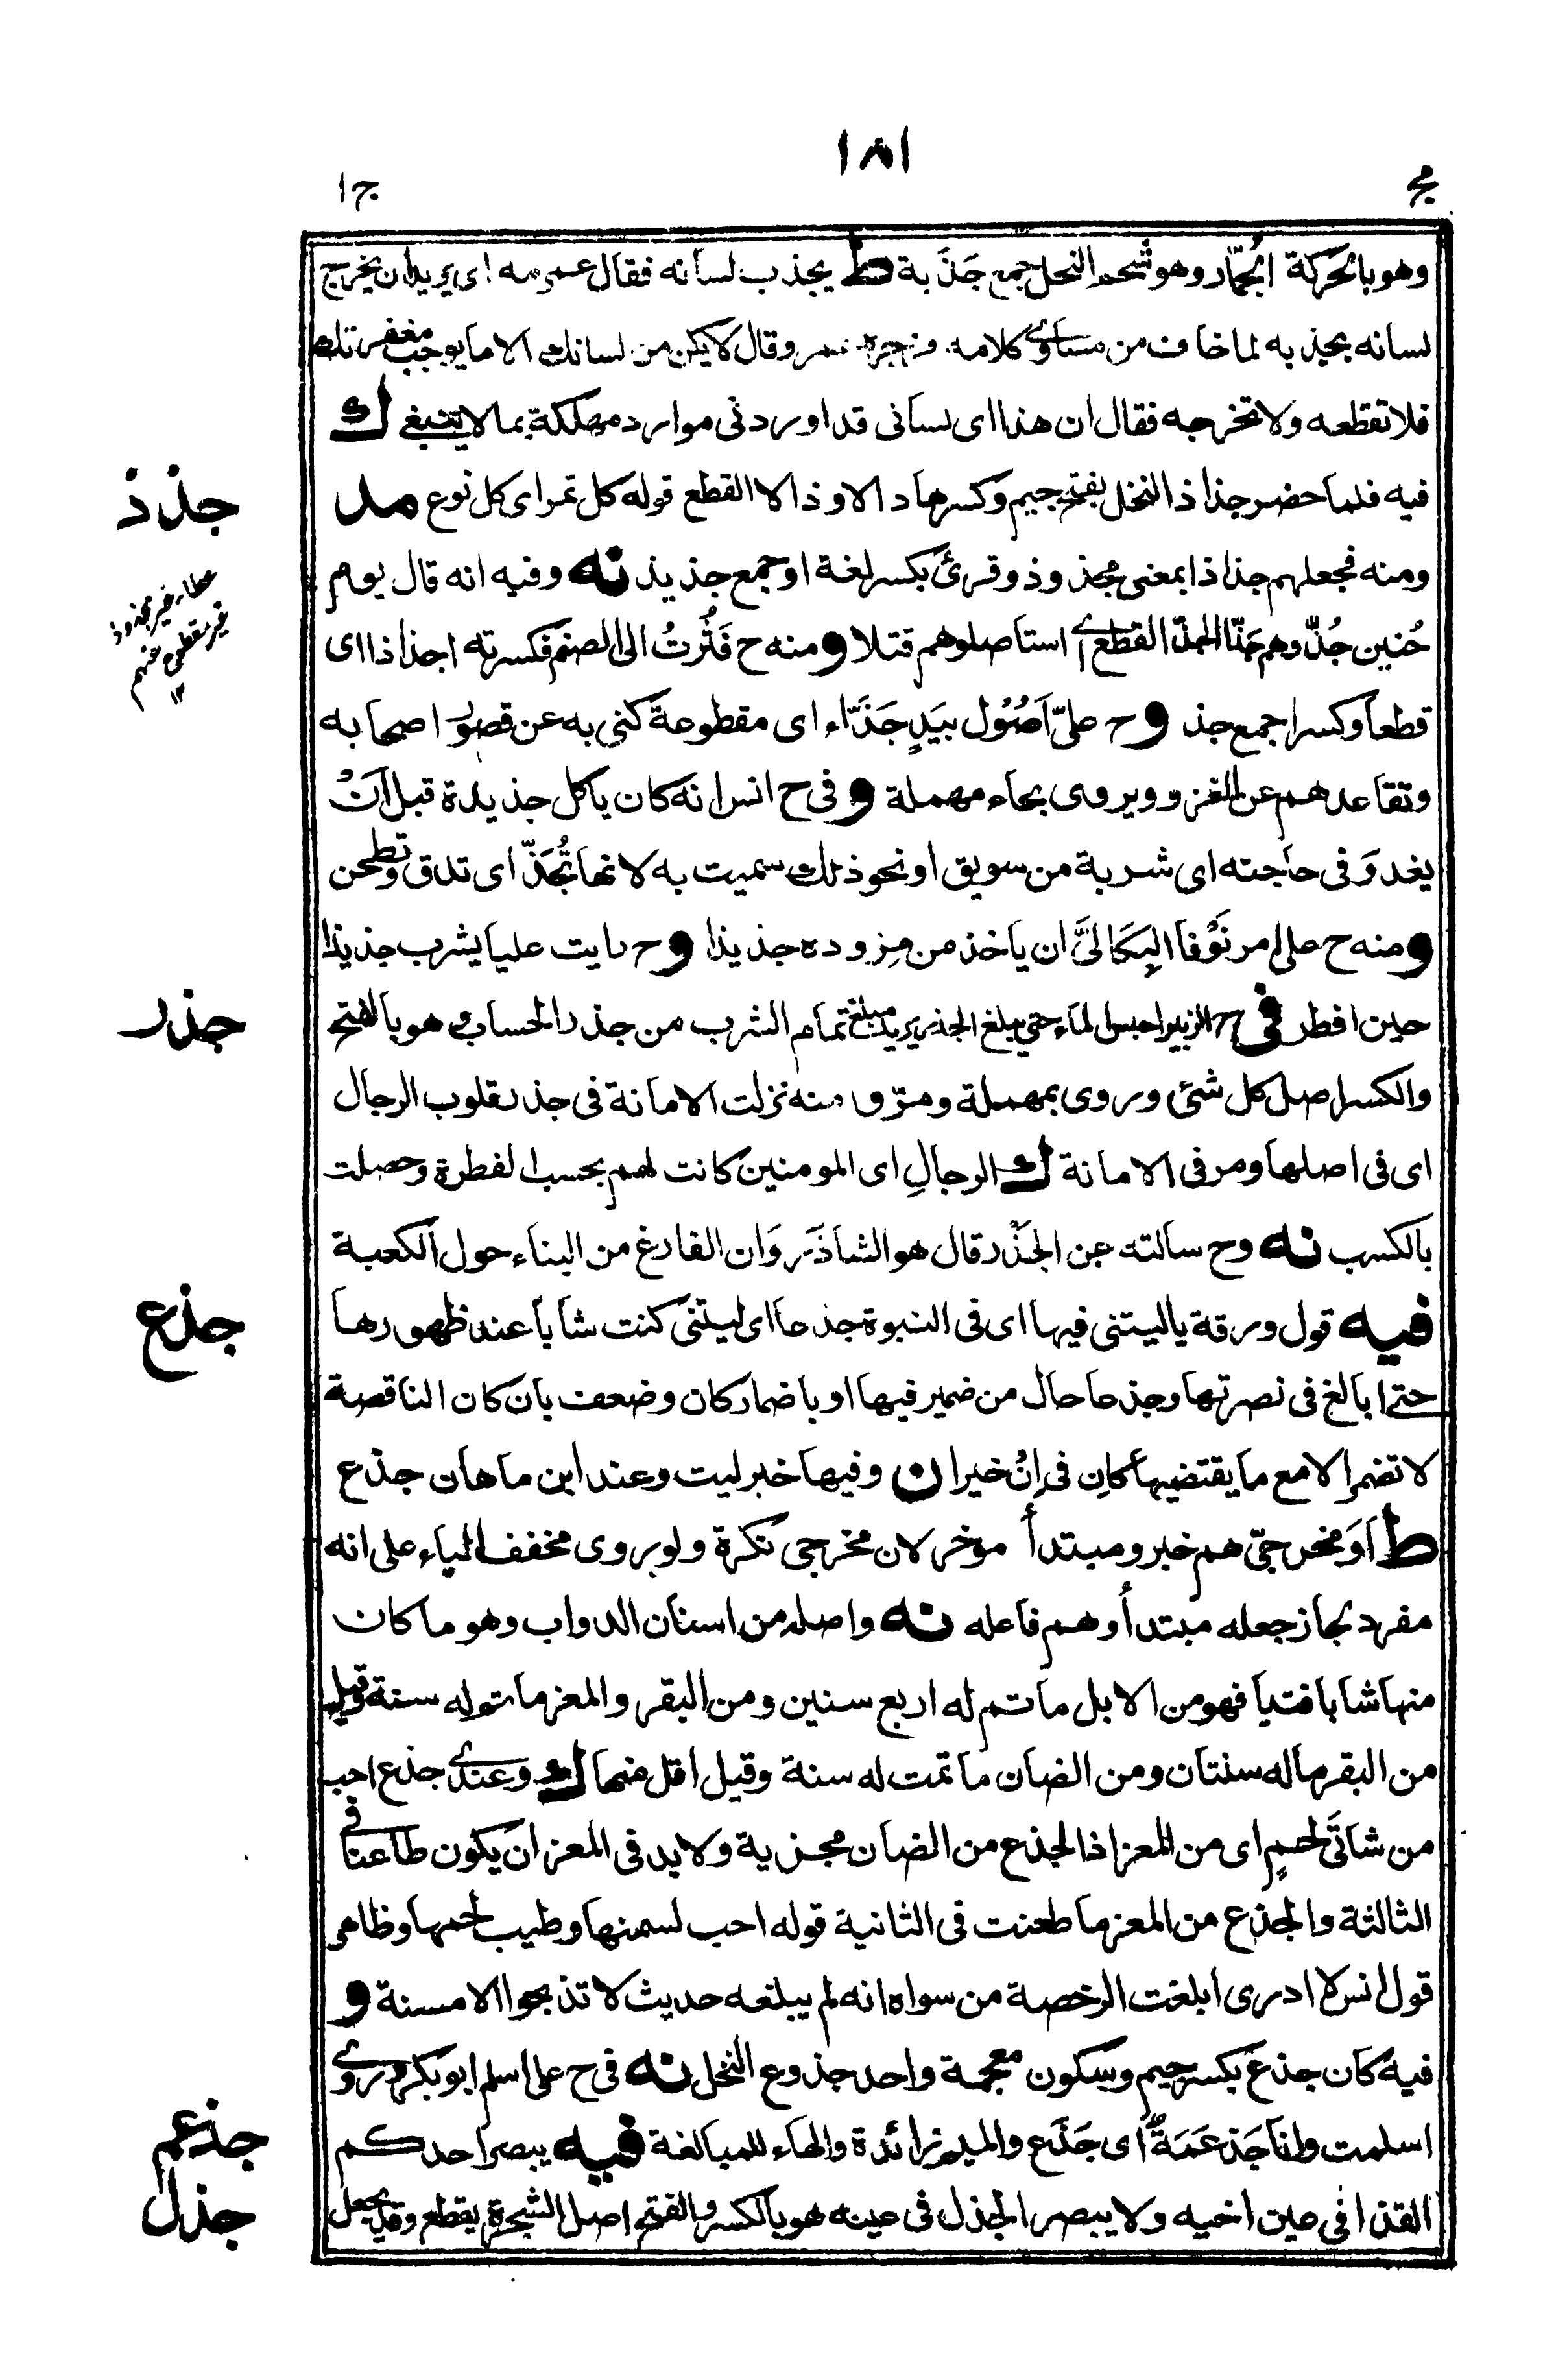 ١٨١
مج
ج١
وهو بالحركة الجُمّار وهو شحم النخل جمع جَذَبة ط يجذب لسانه فقال عمر مه اى يريد ان يخرج
لسانه بجذبه لما خاف من مساوى كلامه وزجره عمر وقال لا يكن من لسانك الا ما يوجب مغفرتك
فلا تقطعه ولا تخرجه فقال ان هذا اى لسانى قد اوردنى موارد مهلكة بما لا ينبغى ك
فيه فلما حضر جذاذ النخل بفتح جيم وكسرها دالا وذالا القطع قوله كل تمر اى كل نوع مد
ومنه فجعلهم جذاذا بمعنى مجذوذ وقرئ بكسر لغة او جمع جذيذ نه وفيه انه قال يوم
حُنين جُذّوهم جَذّا الجذّ القطع اى استاصلوهم قتلا ومنه ح فَثُرتُ الى الصنم فكسرته اجذاذا اى
قطعا وكسرا جمع جذ وح علىّ اَصُوْل بيَدٍ جَذّاء اى مقطوعة كنى به عن قصور اصحابه
وتقاعدهم عن الغزو ويروى بحاء مهملة وفى ح انس انه كان ياكل جذيذة قبل اَنْ
يغدوَ فى حاجته اى شربة من سويق او نحو ذلك سميت به لانها تُجَذّ اى تدق وتطحن
ومنه ح على امر نَوْفا البِكَالىَّ ان ياخذ من مِزوده جذيذا وح رايت عليا يشرب جذيذا
حين افطر فى ح الزبير احبس الماء حتى يبلغ الجذر يريد مبلغ تمام الشرب من جذر الحساب وهو بالفتح
والكسر اصل كل شئ وروى بمهملة ومرّ ومنه نزلت الامانة فى جذر قلوب الرجال
اى فى اصلها ومر فى الامانة ك الرجالِ اى المومنين كانت لهم بحسب الفطرة وحصلت
بالكسب نه وح سالته عن الجَذْر قال هو الشاذَروَان الفارغ من البناء حول الكعبة
فيه قول ورقة ياليتنى فيها اى فى النبوة جذعا اى ليتنى كنت شابا عند ظهورها
حتى ابالغ فى نصرتها وجذعا حال من ضمير فيها او باضمار كان وضعف بان كان الناقصة
لا تضمر الا مع ما يقتضيها كاِن فى اِنْ خيرا ن وفيها خبر ليت وعند ابن ماهان جذع
ط اَوَ مخرجىّ هم خبر ومبتدأ موخر لان مخرجى نكرة ولو روى مخفف الياء على انه
مفرد لجاز جعله مبتدأ وهم فاعله نه واصله من اسنان الدواب وهو ما كان
منها شابا فتيا فهو من الابل ما تم له اربع سنين ومن البقر والمعز ما تم له سنة وقيل
من البقر ما له سنتان ومن الضان ما تمت له سنة وقيل اقل منها ك وعندى جذع احب
من شاتَى لحمٍ اى من المعز اذ الجذع من الضان مجزية ولا بد فى المعز ان يكون طاعنا فى
الثالثة والجذع من المعز ما طعنت فى الثانية قوله احب لسمنها وطيب لحمها وظاهر
قول انس لا ادرى ابلغت الرخصة من سواه انه لم يبلغه حديث لا تذبحوا الا مسنة و
فيه كان جذع بكسر جيم وسكون معجمة واحد جذوع النخل نه فى ح على اسلم ابو بكر وروى
اسلمت وانا جَذعَمَةٌ اى جَذَع والميم زائدة والهاء للمبالغة فيه يبصر احدكم
القذا فى عين اخيه ولا يبصر الجذل فى عينه هو بالكسر والفتح اصل الشجرة يقطع وقد يجعل
جذذ
عطاء غير مجذوذ
غير مقطوع عنهم
١٢
جذر
جذع
جذعم
جذل